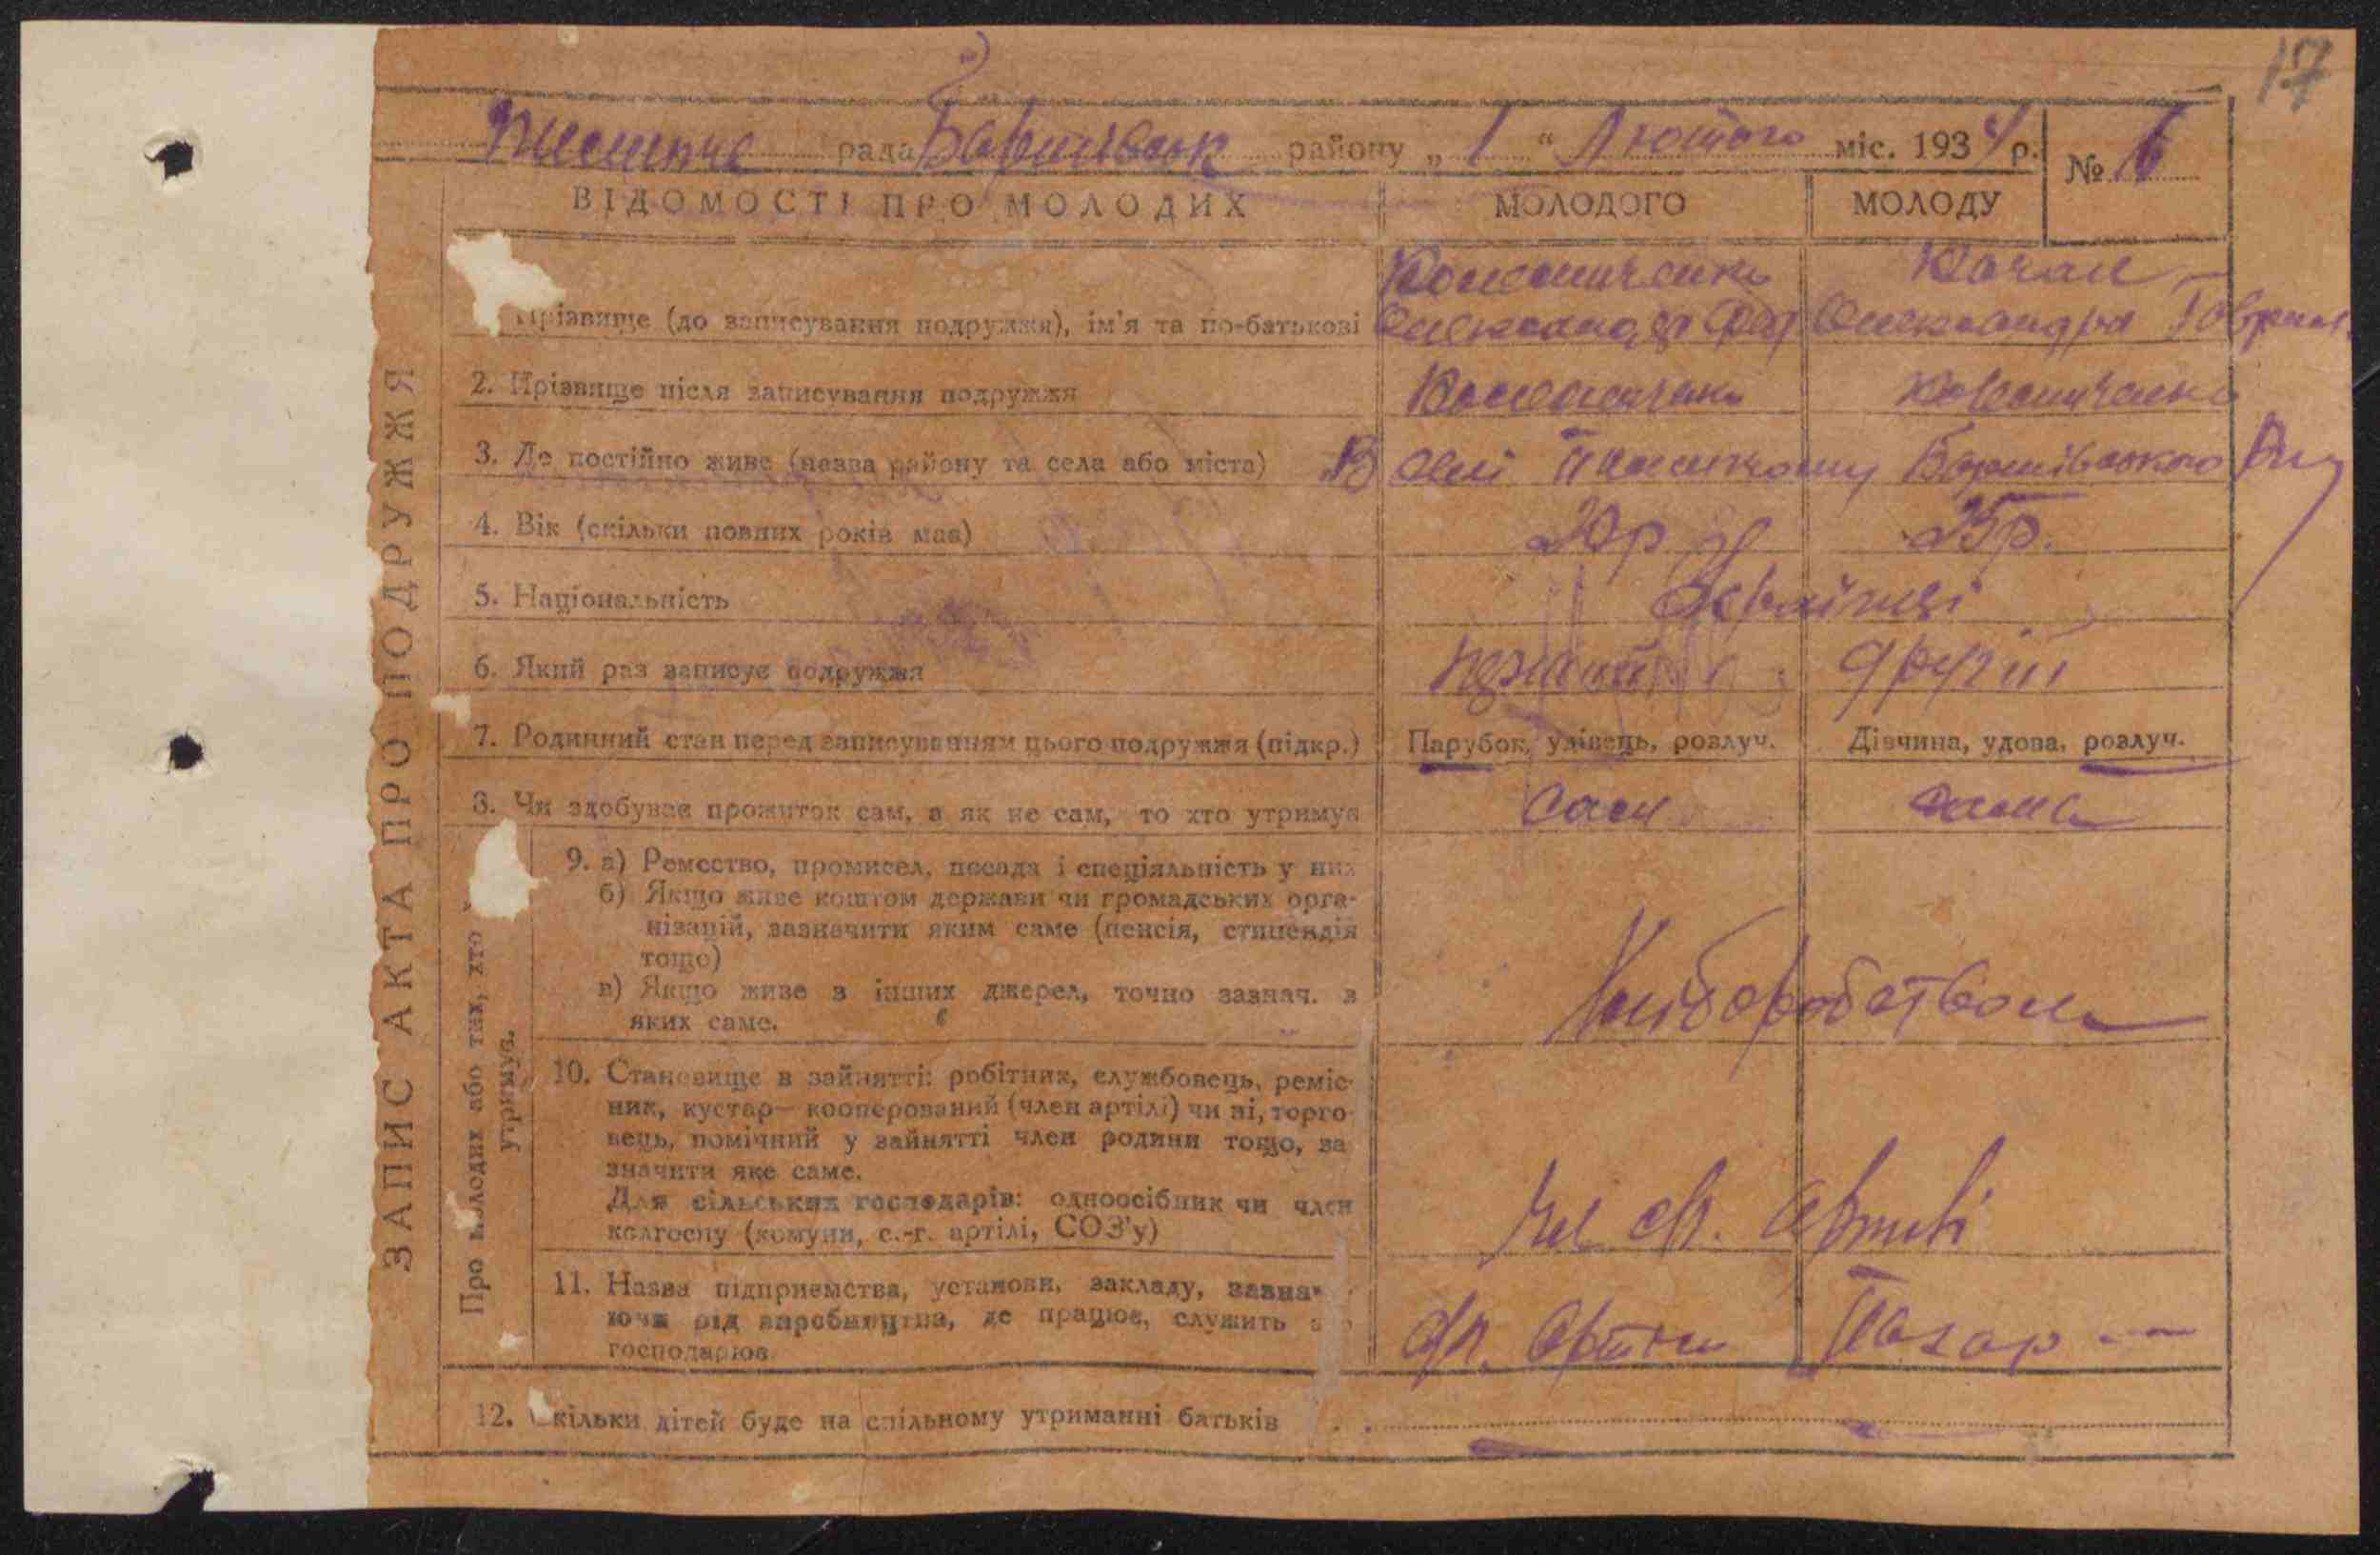 17
рада Баришівськ району „ 1 “ Лютого міс. 1934 р. № 6
ВІДОМОСТІ ПРО МОЛОДИХ МОЛОДОГО МОЛОДУ
ЗАПИС АКТА ПРО ПОДРУЖЖЯ
Прізвище (до записування подружжя), ім'я та по-батькові
Олександр Олександра
2. Прізвище після записування подружжя
3. Де постійно живе (назва району та села або міста) В селі Баришівського
4. Вік (скільки повних років має) 20р 25р.
5. Національність Українці
6. Який раз записує подружжя другий
7. Родинний стан перед записуванням цього подружжя (підкр.) Парубок, удівець, розлуч. Дівчина, удова, розлуч.
8. Чи здобуває прожиток сам, а як не сам, то хто утримує сам сама
Про молодих або тих, хто
утримує.
9. а) Ремество, промисел, посада і спеціяльність у них
б) Якщо живе коштом держави чи громадських орга-
нізацій, зазначити яким саме (пенсія, стипендія
тощо)
в) Якщо живе з інших джерел, точно зазнач. з
яких саме.
Хліборобством
10. Становище в зайнятті: робітник, службовець, реміс-
ник, кустар — кооперований (член артілі) чи ні, торго-
вець, помічний у зайнятті член родини тощо, за
значити яке саме.
Для сільських господарів: одноосібник чи член
колгоспу (комуни, с.-г. артілі, СОЗ'у)
Чл Артілі
11. Назва підприємства, установи, закладу, зазна
ючи рід виробництва, де працює, служить
господарює
12. Скільки дітей буде на спільному утриманні батьків